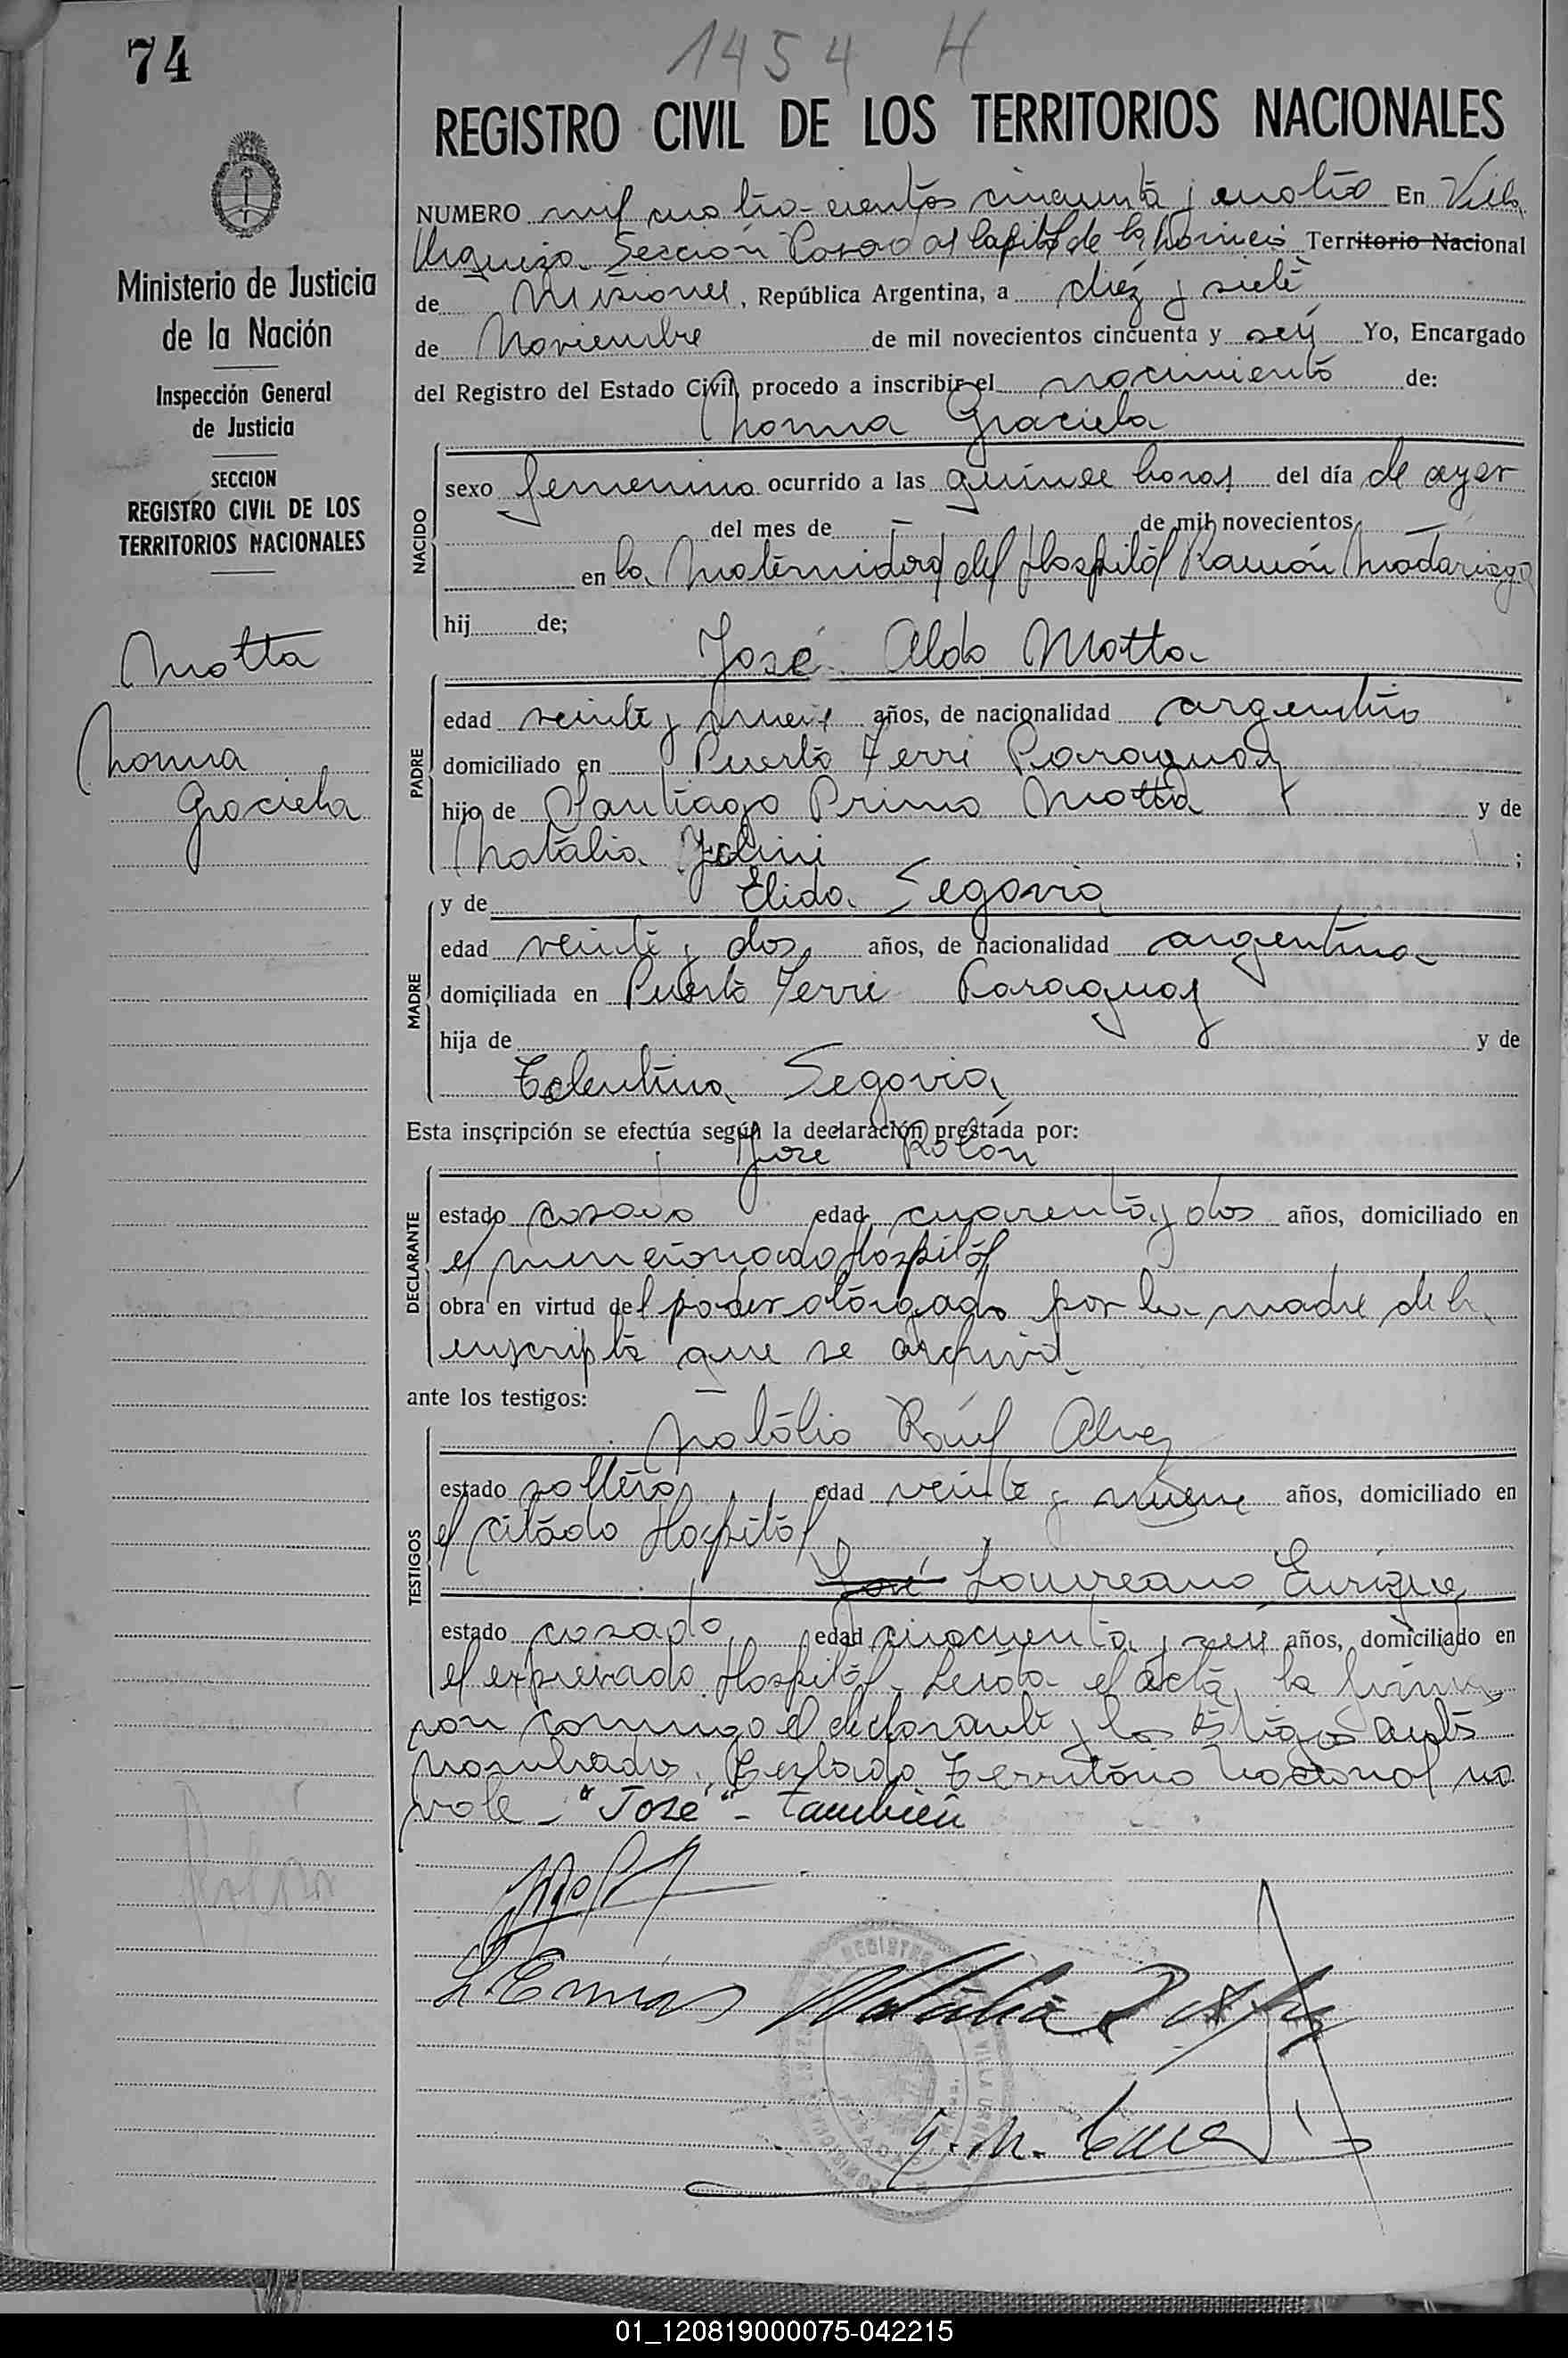 74
1454 H
REGISTRO CIVIL DE LOS TERRITORIOS NACIONALES
Ministerio de Justicia
de la Nación
Inspección General
de Justicia
SECCION
REGISTRO CIVIL DE LOS
TERRITORIOS NACIONALES
Motta
Norma
Graciela
NUMERO mil cuatro-cientos cincuenta y cuatro En Villa
Urquiza Sección Posadas Capital de la Provincia Territorio Nacional
de Misiones, República Argentina, a diez y siete
de Noviembre de mil novecientos cincuenta y seis Yo, Encargado
del Registro del Estado Civil, procedo a inscribir el nacimiento de:
Norma Graciela
NACIDO
sexo femenino ocurrido a las quince horas del día de ayer
del mes de — de mil novecientos —
en la Maternidad del Hospital Ramón Madariaga
hij de;
José Aldo Motta
PADRE
edad veinte y nueve años, de nacionalidad argentino
domiciliado en Puerto Ferri Paraguay
hijo de Santiago Primo Motta y de
Natalia ;
y de Elida Segovia
MADRE
edad veinte y dos años, de nacionalidad argentina
domiciliada en Puerto Ferri Paraguay
hija de y de
Tolentina Segovia
Esta inscripción se efectúa según la declaración prestada por:
José Rolón
DECLARANTE
estado casado edad cuarenta y dos años, domiciliado en
el mencionado Hospital
obra en virtud del poder otorgado por la madre de la
inscripta que se archiva
ante los testigos:
Natalio Raúl Alvez
TESTIGOS
estado soltero edad veinte y nueve años, domiciliado en
el citado Hospital
José Laureano Enrique
estado casado edad cincuenta y seis años, domiciliado en
el expresado Hospital. Leida el acta, la firma
ron conmigo el declarante y los testigos antes
nombrados. Testado Territorio Nacional no
vale - "José" - también
01_120819000075-042215